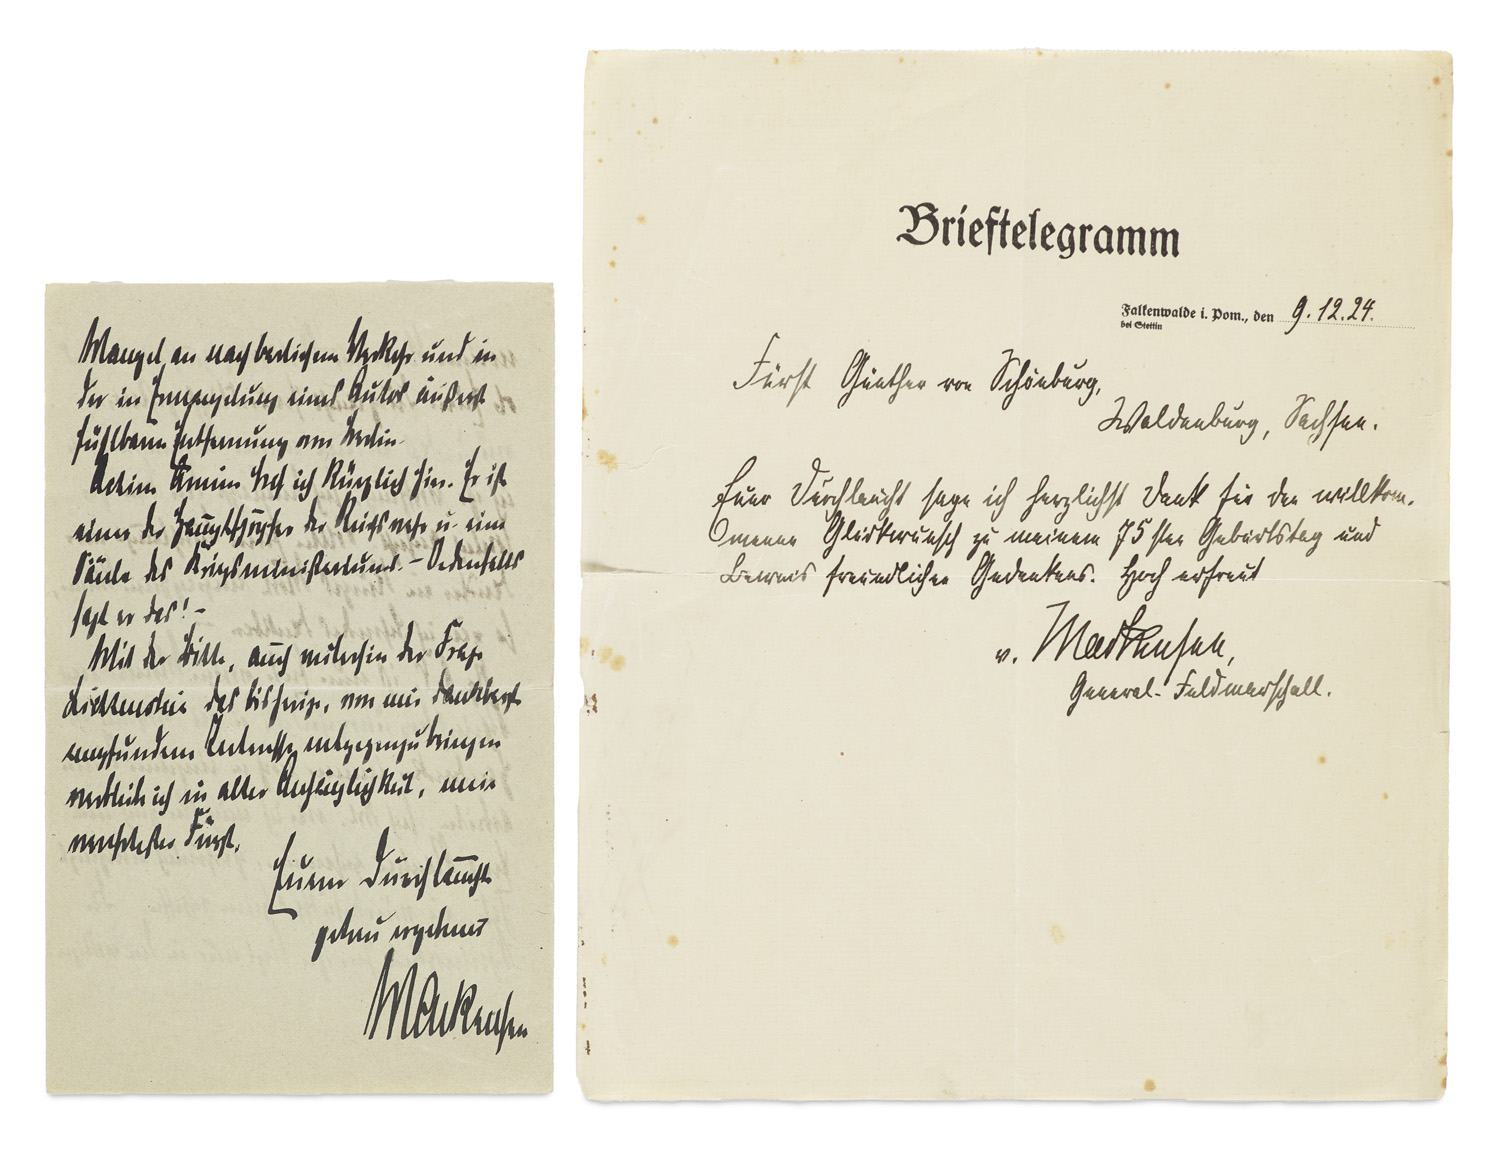 Mangel an nachbarlichem Verkehr und in
der in Ermangelung eines Autos äußerst
fühlbaren Entfernung von Berlin.
Achim Arnim traf ich kürzlich hier. Er ist
einer der Hauptschöpfer der Reichswehr u. eine
Säule des Kriegsministeriums. – Jedenfalls
sagt er das! –
Mit der Bitte, auch weiterhin der Frage
Liechtenstein das bisherige, von mir dankbarst
empfundene Interesse entgegenzubringen
verbleibe ich in alter Anhänglichkeit, mein
verehrtester Fürst,
Euerer Durchlaucht
getreu ergebener
Mackensen
Brieftelegramm
Falkenwalde i. Pom., den 9.12.24.
bei Stettin
Fürst Günther von Schönburg,
Waldenburg, Sachsen.
Euer Durchlaucht sage ich herzlichst Dank für den willkom-
menen Glückwunsch zu meinem 75sten Geburtstag und
Beweis freundlichen Gedenkens. Hoch erfreut
v. Mackensen,
General-Feldmarschall.